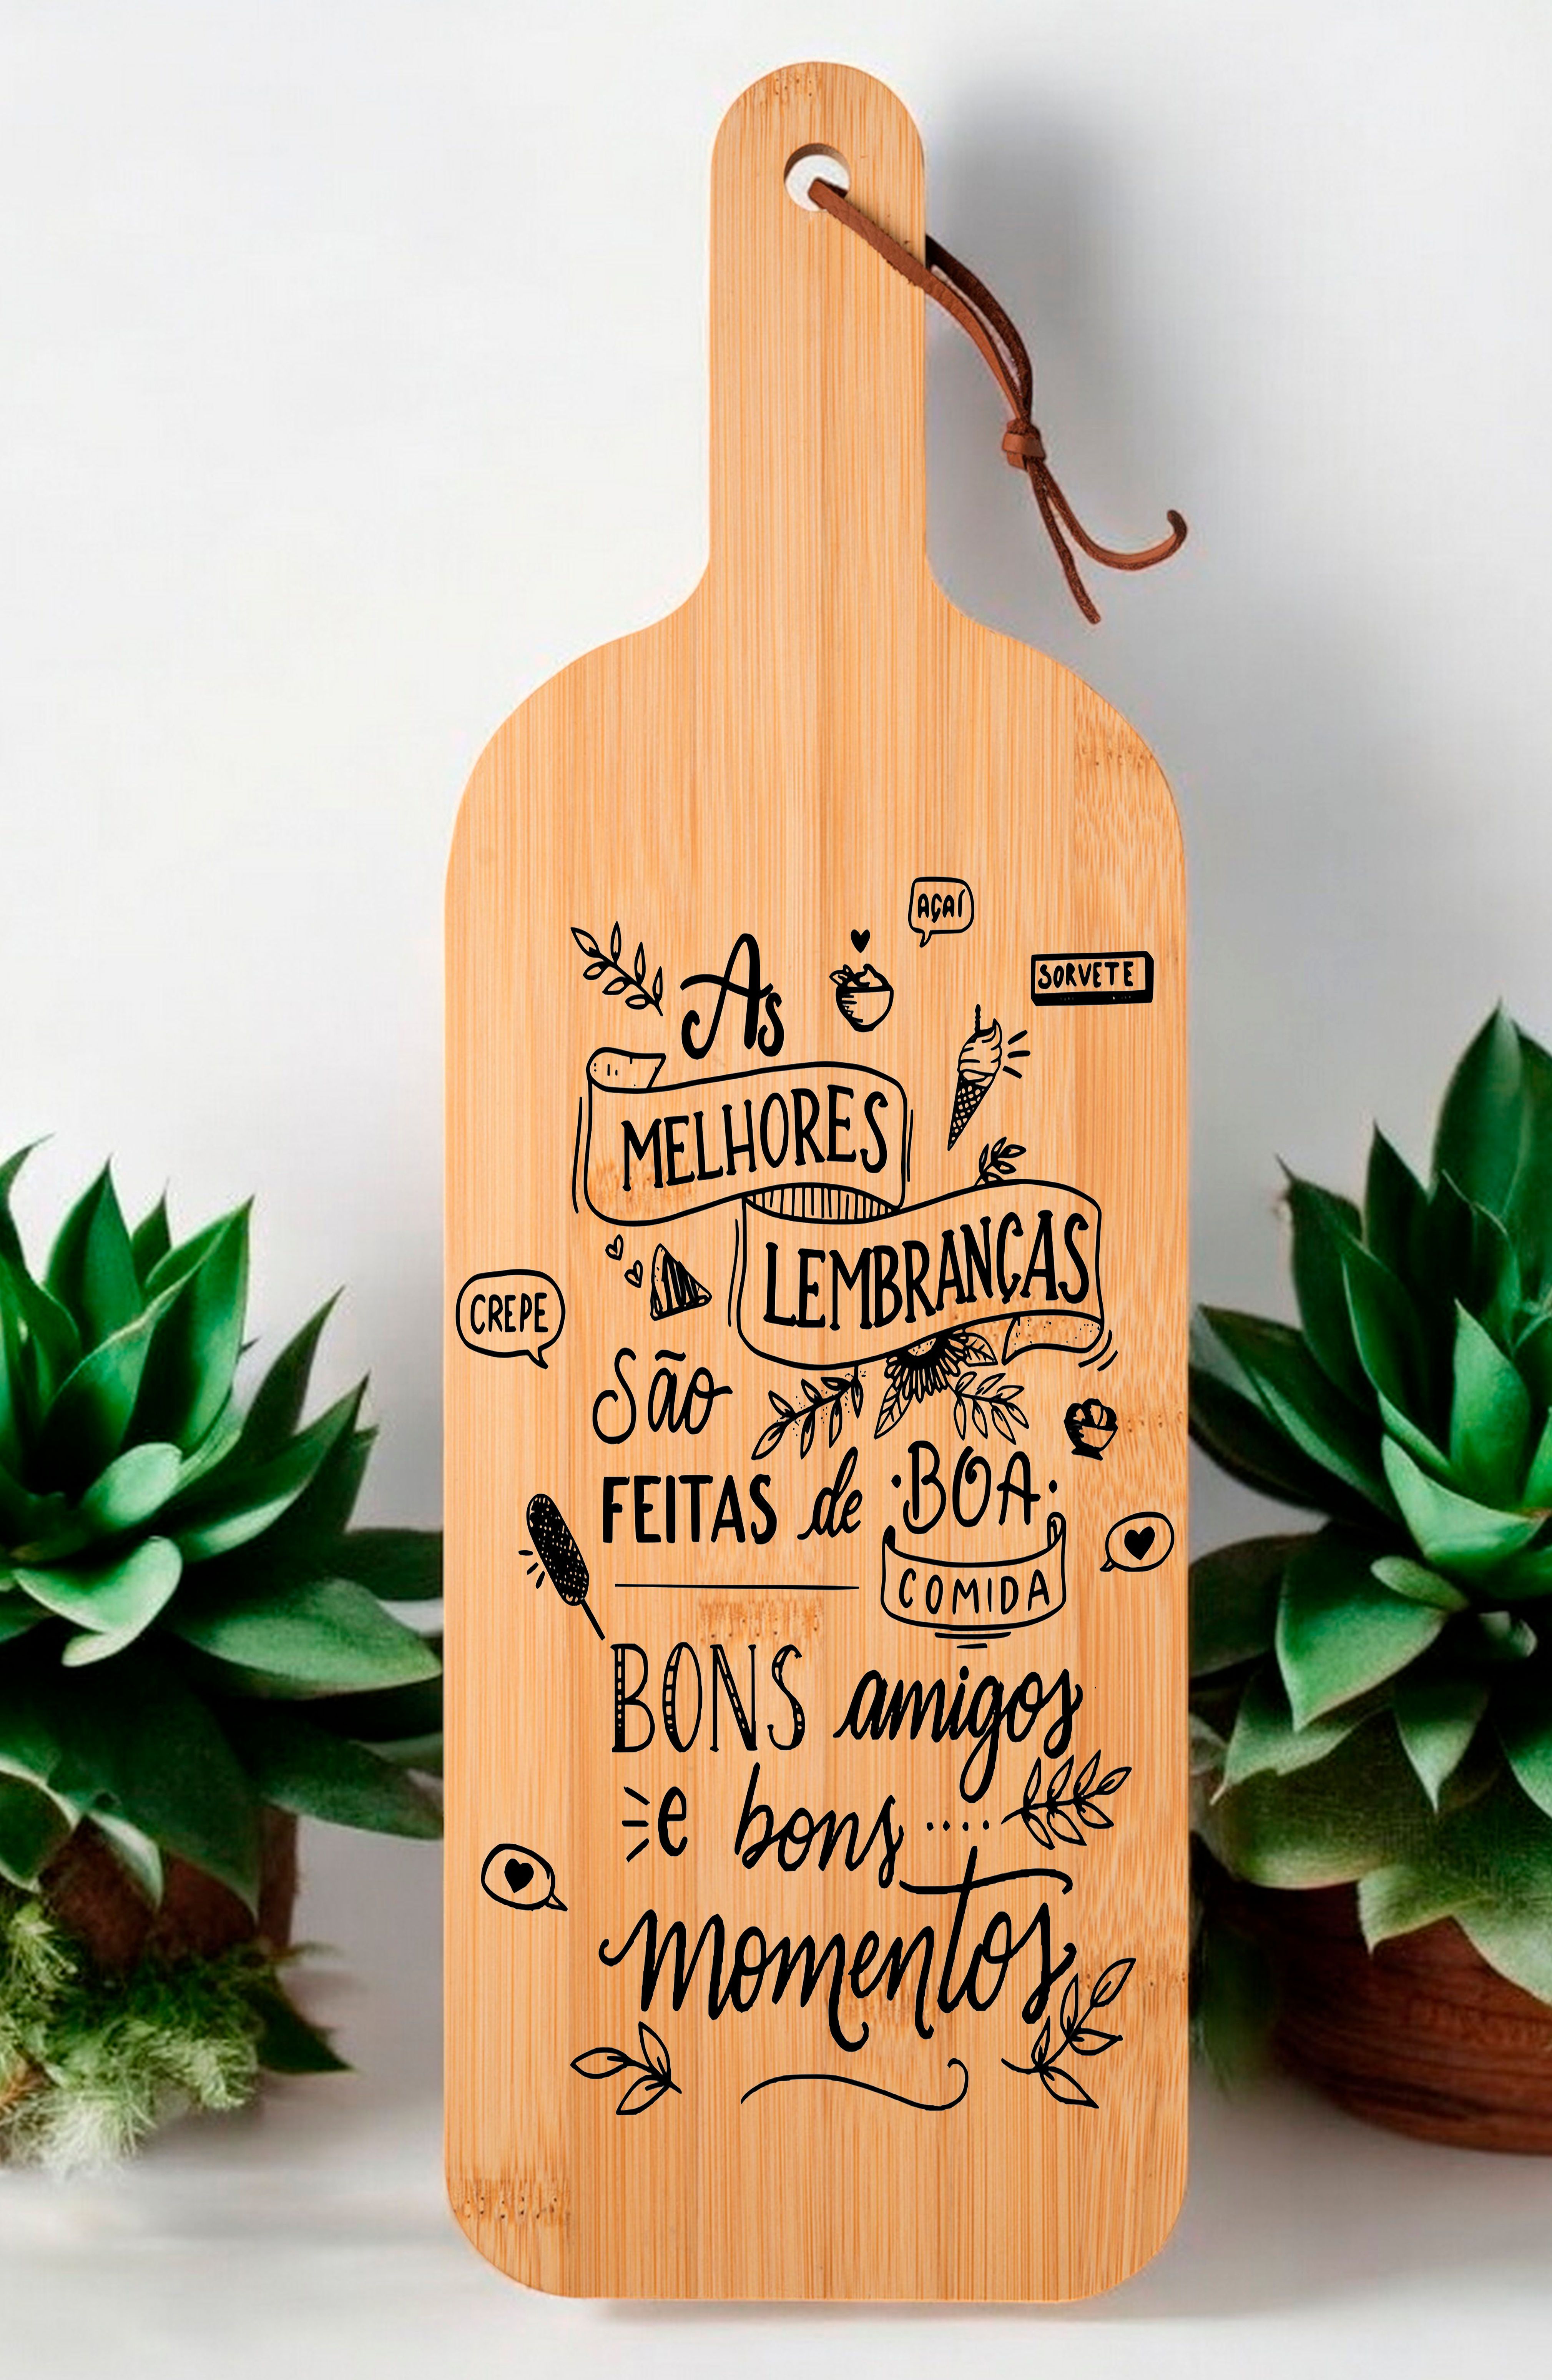 AÇAÍ
SORVETE
As
MELHORES
LEMBRANÇAS
CREPE
São
FEITAS de BOA
COMIDA
BONS amigos
e bons
momentos